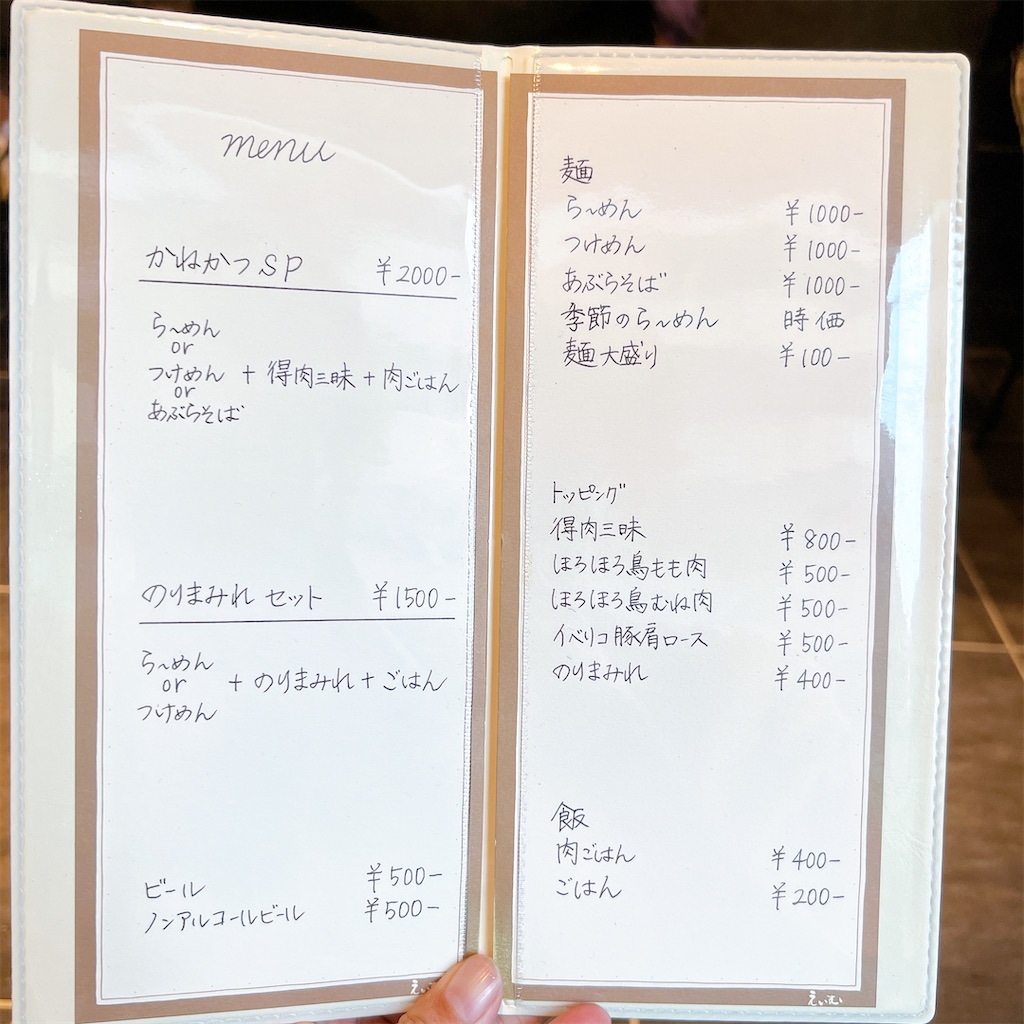 menu
かねかつSP ¥2000-
ら〜めん
or
つけめん + 得肉三昧 + 肉ごはん
or
あぶらそば
のりまみれ セット ¥1500-
ら〜めん
or + のりまみれ + ごはん
つけめん
ビール ¥500-
ノンアルコールビール ¥500-
えいむ
麺
ら〜めん ¥1000-
つけめん ¥1000-
あぶらそば ¥1000-
季節のら〜めん 時価
麺大盛り ¥100-
トッピング
得肉三昧 ¥800-
ほろほろ鳥もも肉 ¥500-
ほろほろ鳥むね肉 ¥500-
イベリコ豚肩ロース ¥500-
のりまみれ ¥400-
飯
肉ごはん ¥400-
ごはん ¥200-
えいむ